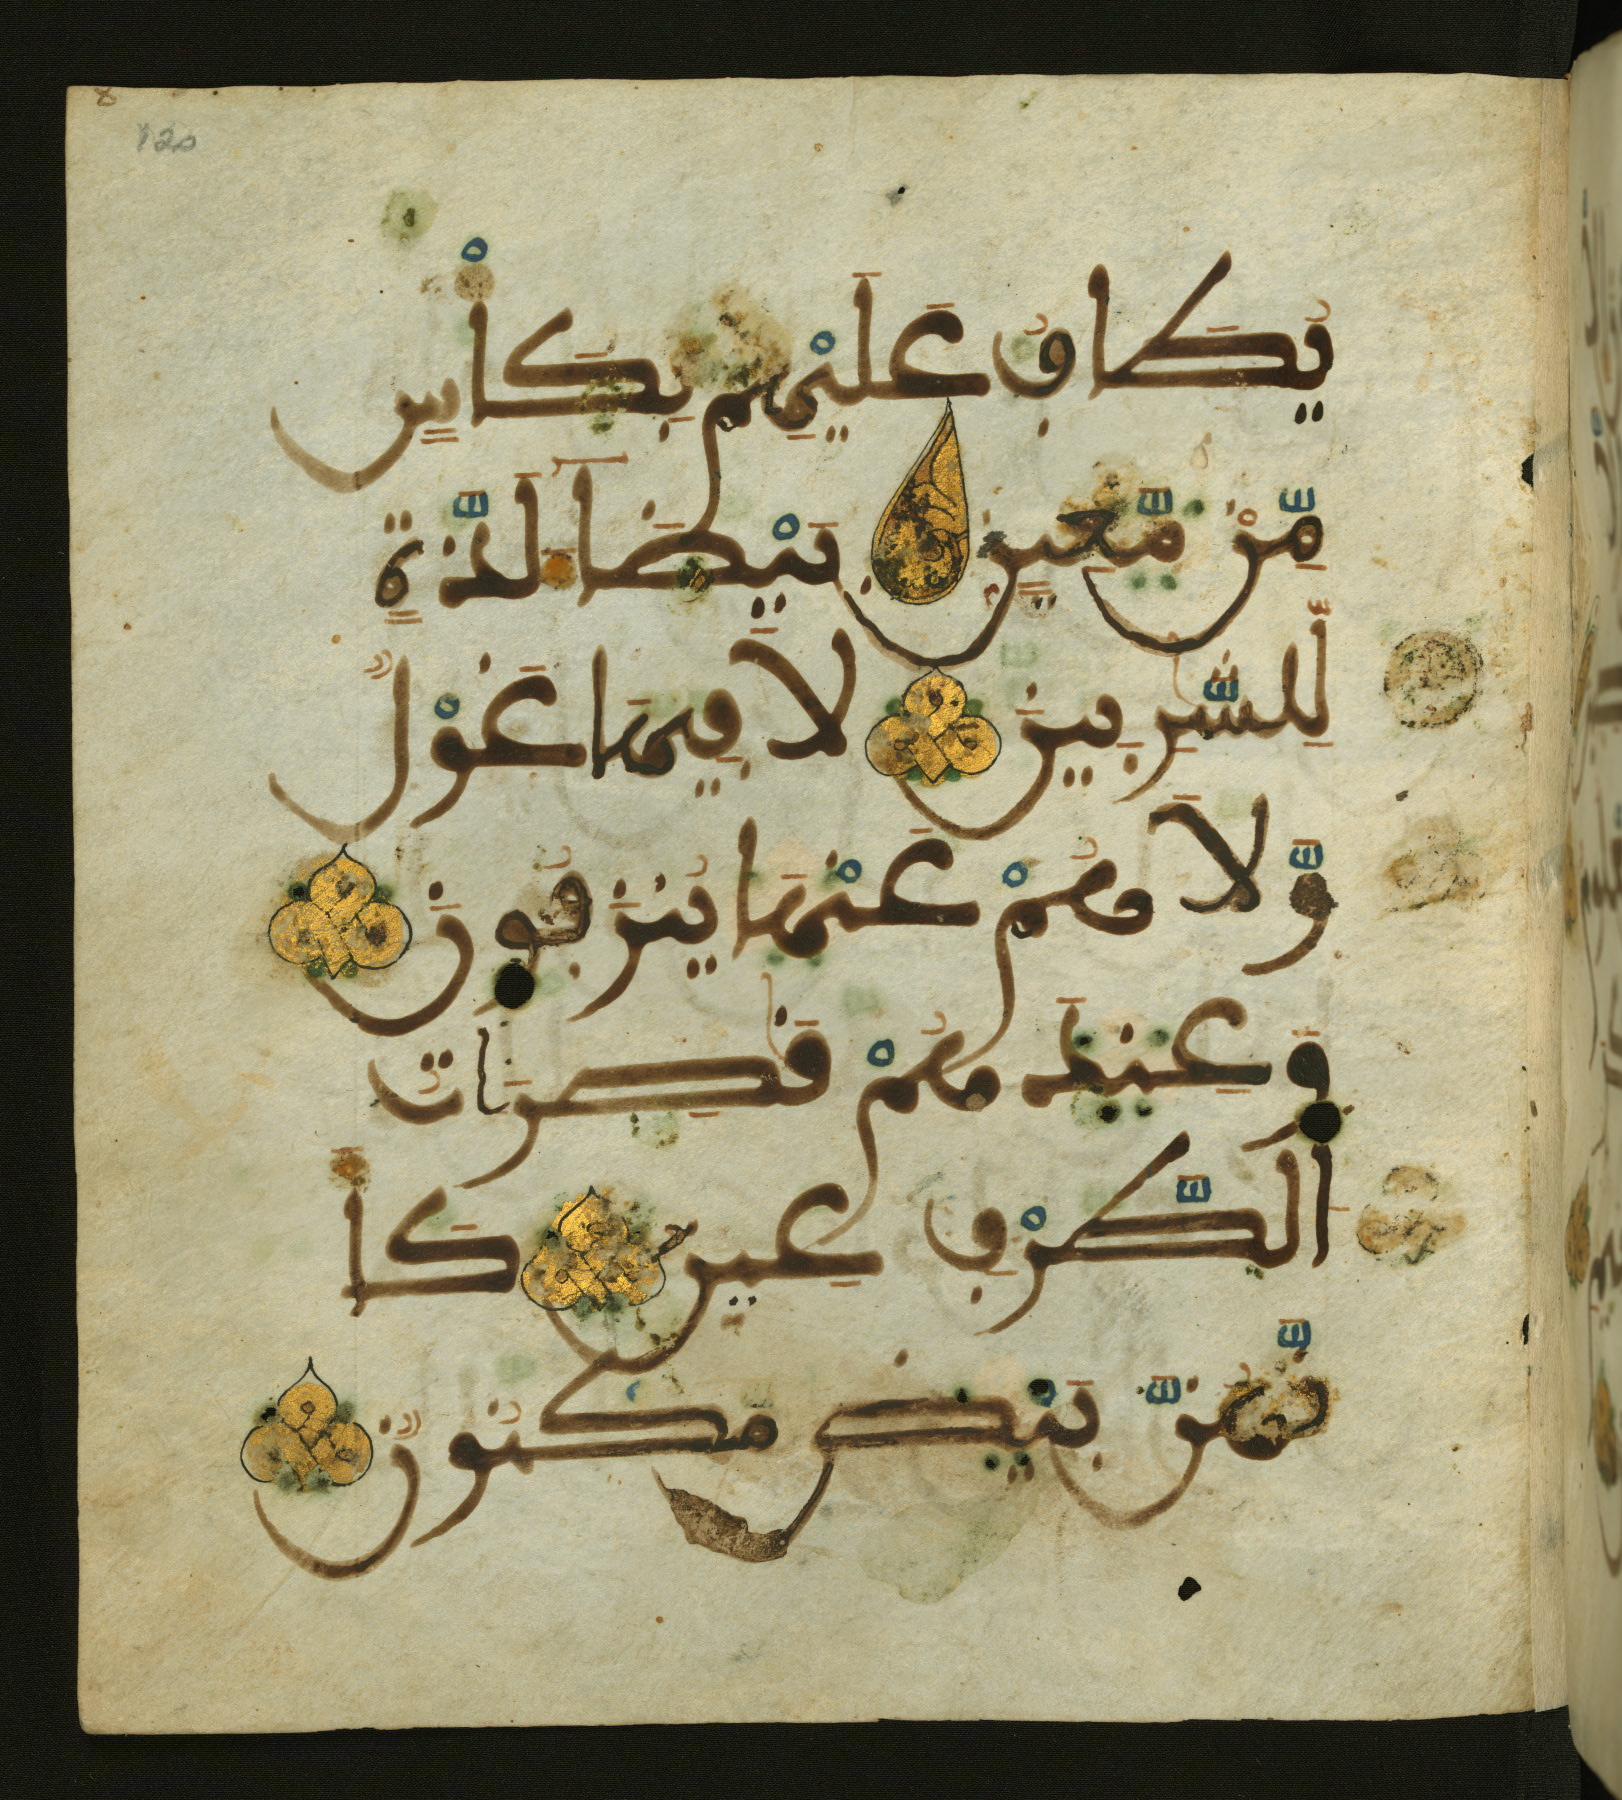 120
يُطَافُ عَلَيْهِم بِكَأْسٍ
مِّن مَّعِينٍ بَيْضَآءَ لَذَّةٍ
لِّلشَّٰرِبِينَ لَا فِيهَا غَوْلٌ
وَّلَا هُمْ عَنْهَا يُنزَفُونَ
وَعِندَهُمْ قَٰصِرَاتُ
اَلطَّرْفِ عِينٌ كَأَ
نَّهُنَّ بَيْضٌ مَّكْنُونٌ